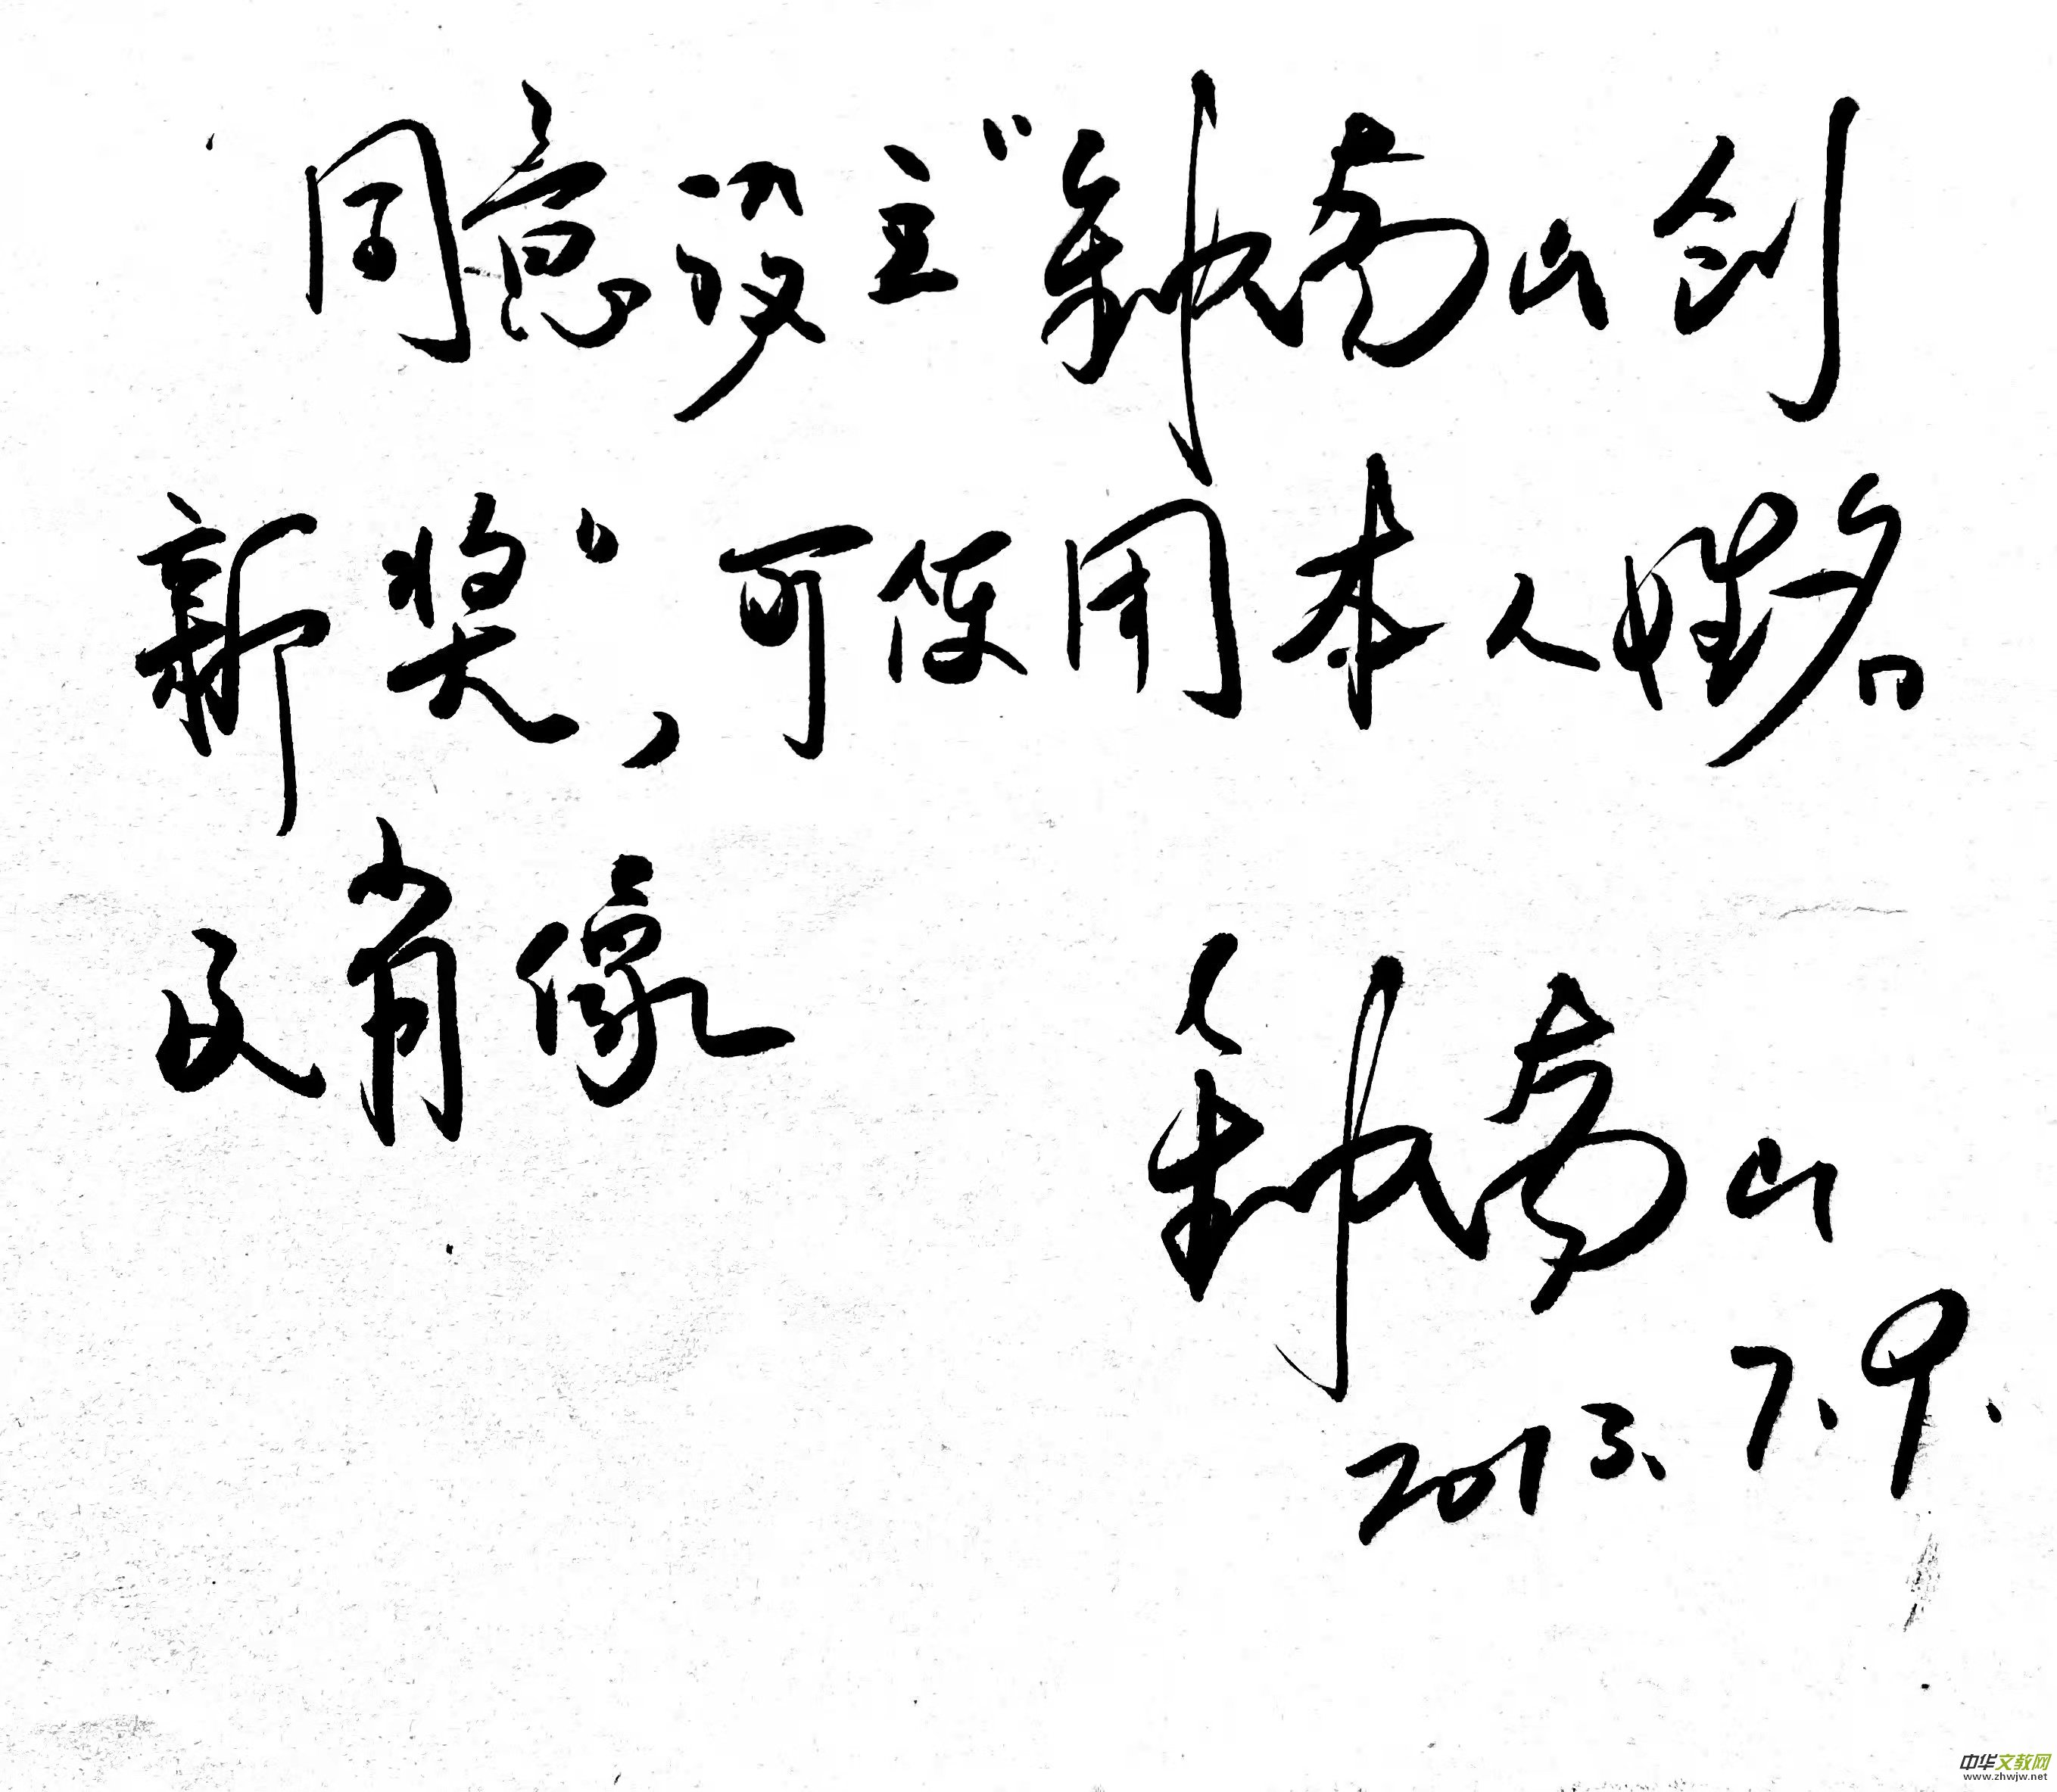 同意设立“钟南山创
新奖”，可使用本人姓名
及肖像
钟南山
2013.7.9.
中华文教网
www.zhwjw.net